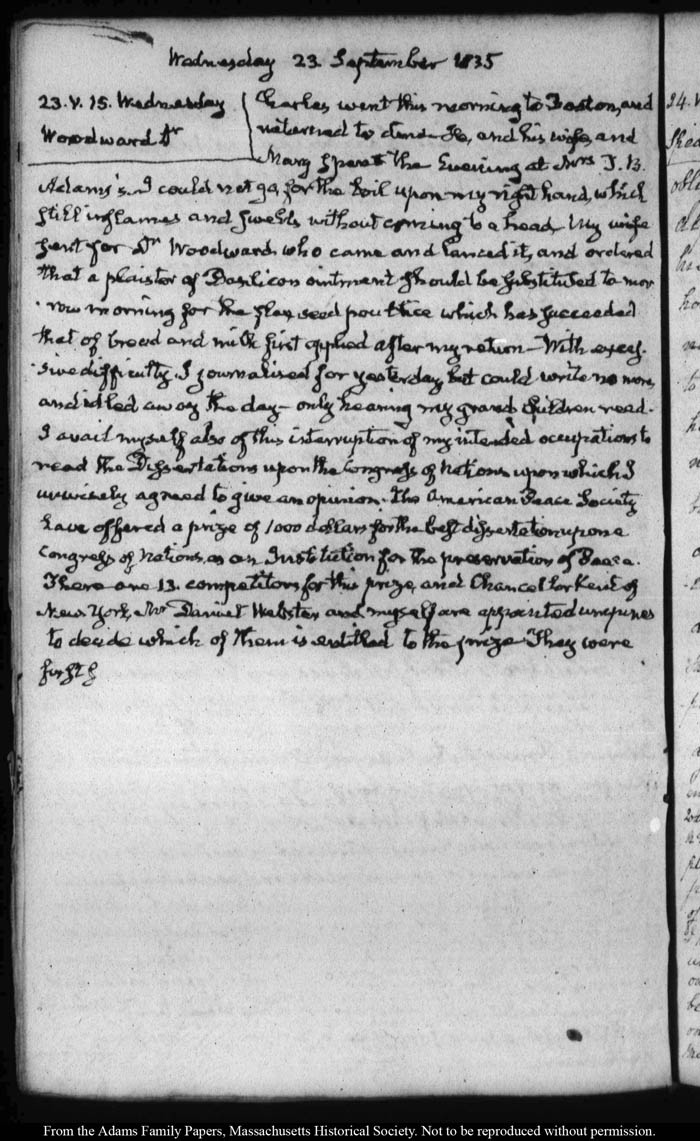 Wednesday 23. September 1835
23. V. 15. Wednesday
Woodward Dr
Charles went this morning to Boston, and
returned to dine. He, and his wife, and
Mary spent the Evening at Mrs T. B.
Adams's. I could not go, for the boil upon my right hand, which
still inflames and swells without coming to a head. My wife
sent for Dr Woodward who came and lanced it, and ordered
that a plaister of Basilicon ointment should be substituted to mor
row morning for the flax seed poultice which has succeeded
that of bread and milk first applied after my return— With exces-
sive difficulty, I journalised for yesterday but could write no more,
and idled away the day— only hearing my grand children read.
I avail myself also of this interruption of my intended occupations to
read the Dissertations upon the Congress of Nations upon which I
unwisely agreed to give an opinion. The American Peace Society
have offered a prize of 1000 dollars for the best dissertation upon a
Congress of Nations, as an Institution for the preservation of Peace.
There are 13. competitors for this prize, and Chancellor Kent of
New York, Mr Daniel Webster and myself are appointed umpires
to decide which of them is entitled to the prize. They were
first
From the Adams Family Papers, Massachusetts Historical Society. Not to be reproduced without permission.